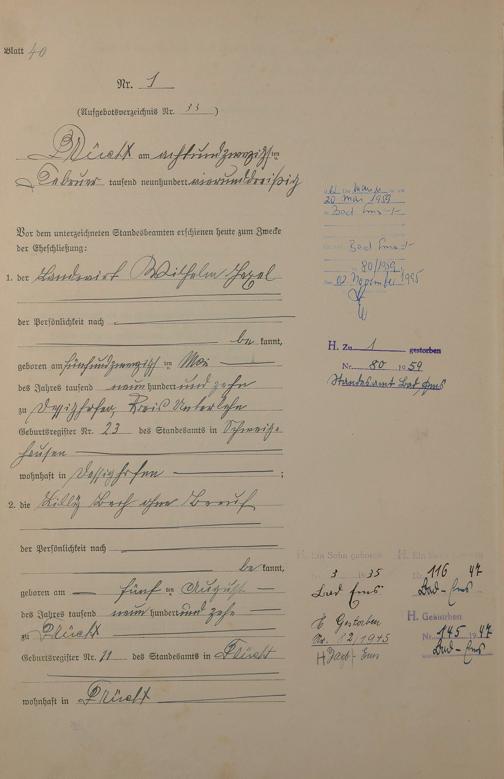 Blatt 40
Nr. 1
(Aufgebotsverzeichnis Nr. 33)
am achtundzwanzigsten
Februar tausend neunhundert vierunddreißig
Vor dem unterzeichneten Standesbeamten erschienen heute zum Zwecke
der Eheschließung:
1. der Landwirt Wilhelm
der Persönlichkeit nach
bekannt,
geboren am fünfundzwanzigsten Mai
des Jahres tausend neunhundert und zehn
zu Dessighofen, Kreis Unterlahn
Geburtsregister Nr. 23 des Standesamts in Schweig-
hausen
wohnhaft in Dessighofen ;
2. die Lilly ohne Beruf
der Persönlichkeit nach
bekannt,
geboren am fünften August
des Jahres tausend neunhundert und zehn
zu
Geburtsregister Nr. 11 des Standesamts in
wohnhaft in
20 Mai 1959
Bad Ems
Bad Ems
80/1959
November 1995
H. Zu 1 gestorben
Nr. 80 1959
Standesamt Bad Ems
H. Ein Sohn geboren
3 1935
Bad Ems
Gestorben
Nr. 12/1945
Ems
H. Ein
Nr. 116 47
Bad-Ems
H. Gestorben
Nr. 145 1947
Bad-Ems